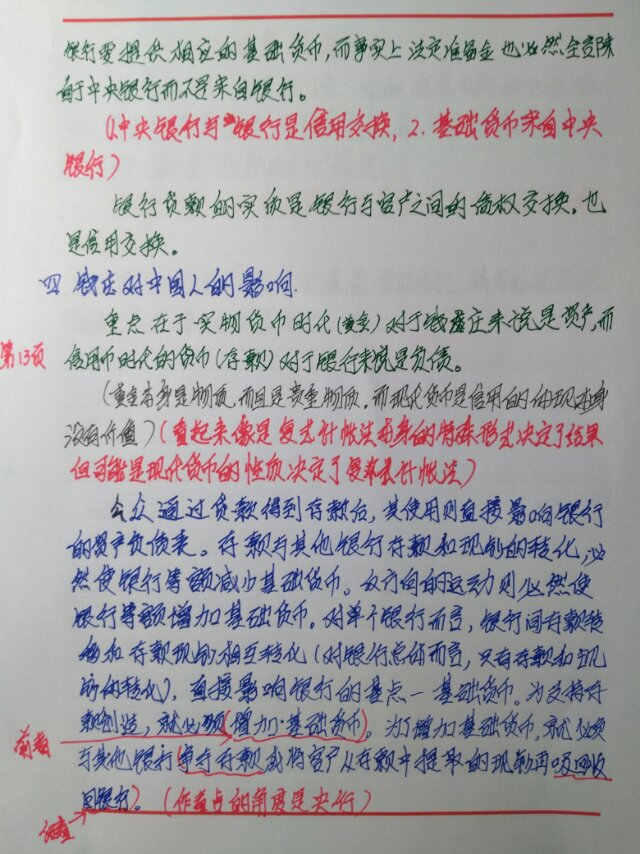 银行要提供相应的基础货币,而事实上法定准备金也必然全部来
自于中央银行而不是来自银行。
(1.中央银行与银行是信用交换, 2.基础货币来自中央
银行)
银行贷款的实质是银行与客户之间的债权交换。也
是信用交换。
四 钱庄对中国人的影响.
重点在于实物货币时代(黄金)对于钱庄来说是资产,而
第13页
信用币时代的货币(存款)对于银行来说是负债。
(黄金本身是物质,而且是贵重物质,而现代货币是信用的体现本身
没有价值)(看起来像是复式计帐法本身的特殊形式决定了结果
但可能是现代货币的性质决定了复式计帐法)
公众通过贷款得到存款后,其使用则直接影响银行
的资产负债表。存款与其他银行存款和现钞的转化,必
然使银行等额减少基础货币。反方向的运动则必然使
银行等额增加基础货币。对单个银行而言,银行间存款转
移和存款现钞相互转化(对银行总体而言,只有存款和现
钞的转化),直接影响银行的基点一基础货币。为支持存
款创造,就必须(增加基础货币)。为了增加基础货币,就必须
前者
与其他银行争夺存款或将客户从存款中提取的现钞再吸回收
回银行)。(作者占的角度是央行)